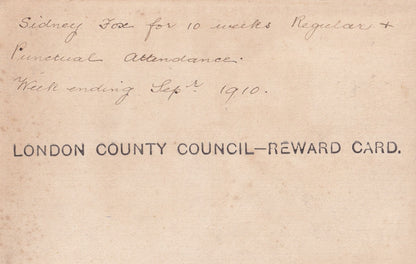 Sidney Fox for 10 weeks Regular +
Punctual Attendance.
Week ending Sepr 1910.
LONDON COUNTY COUNCIL—REWARD CARD.